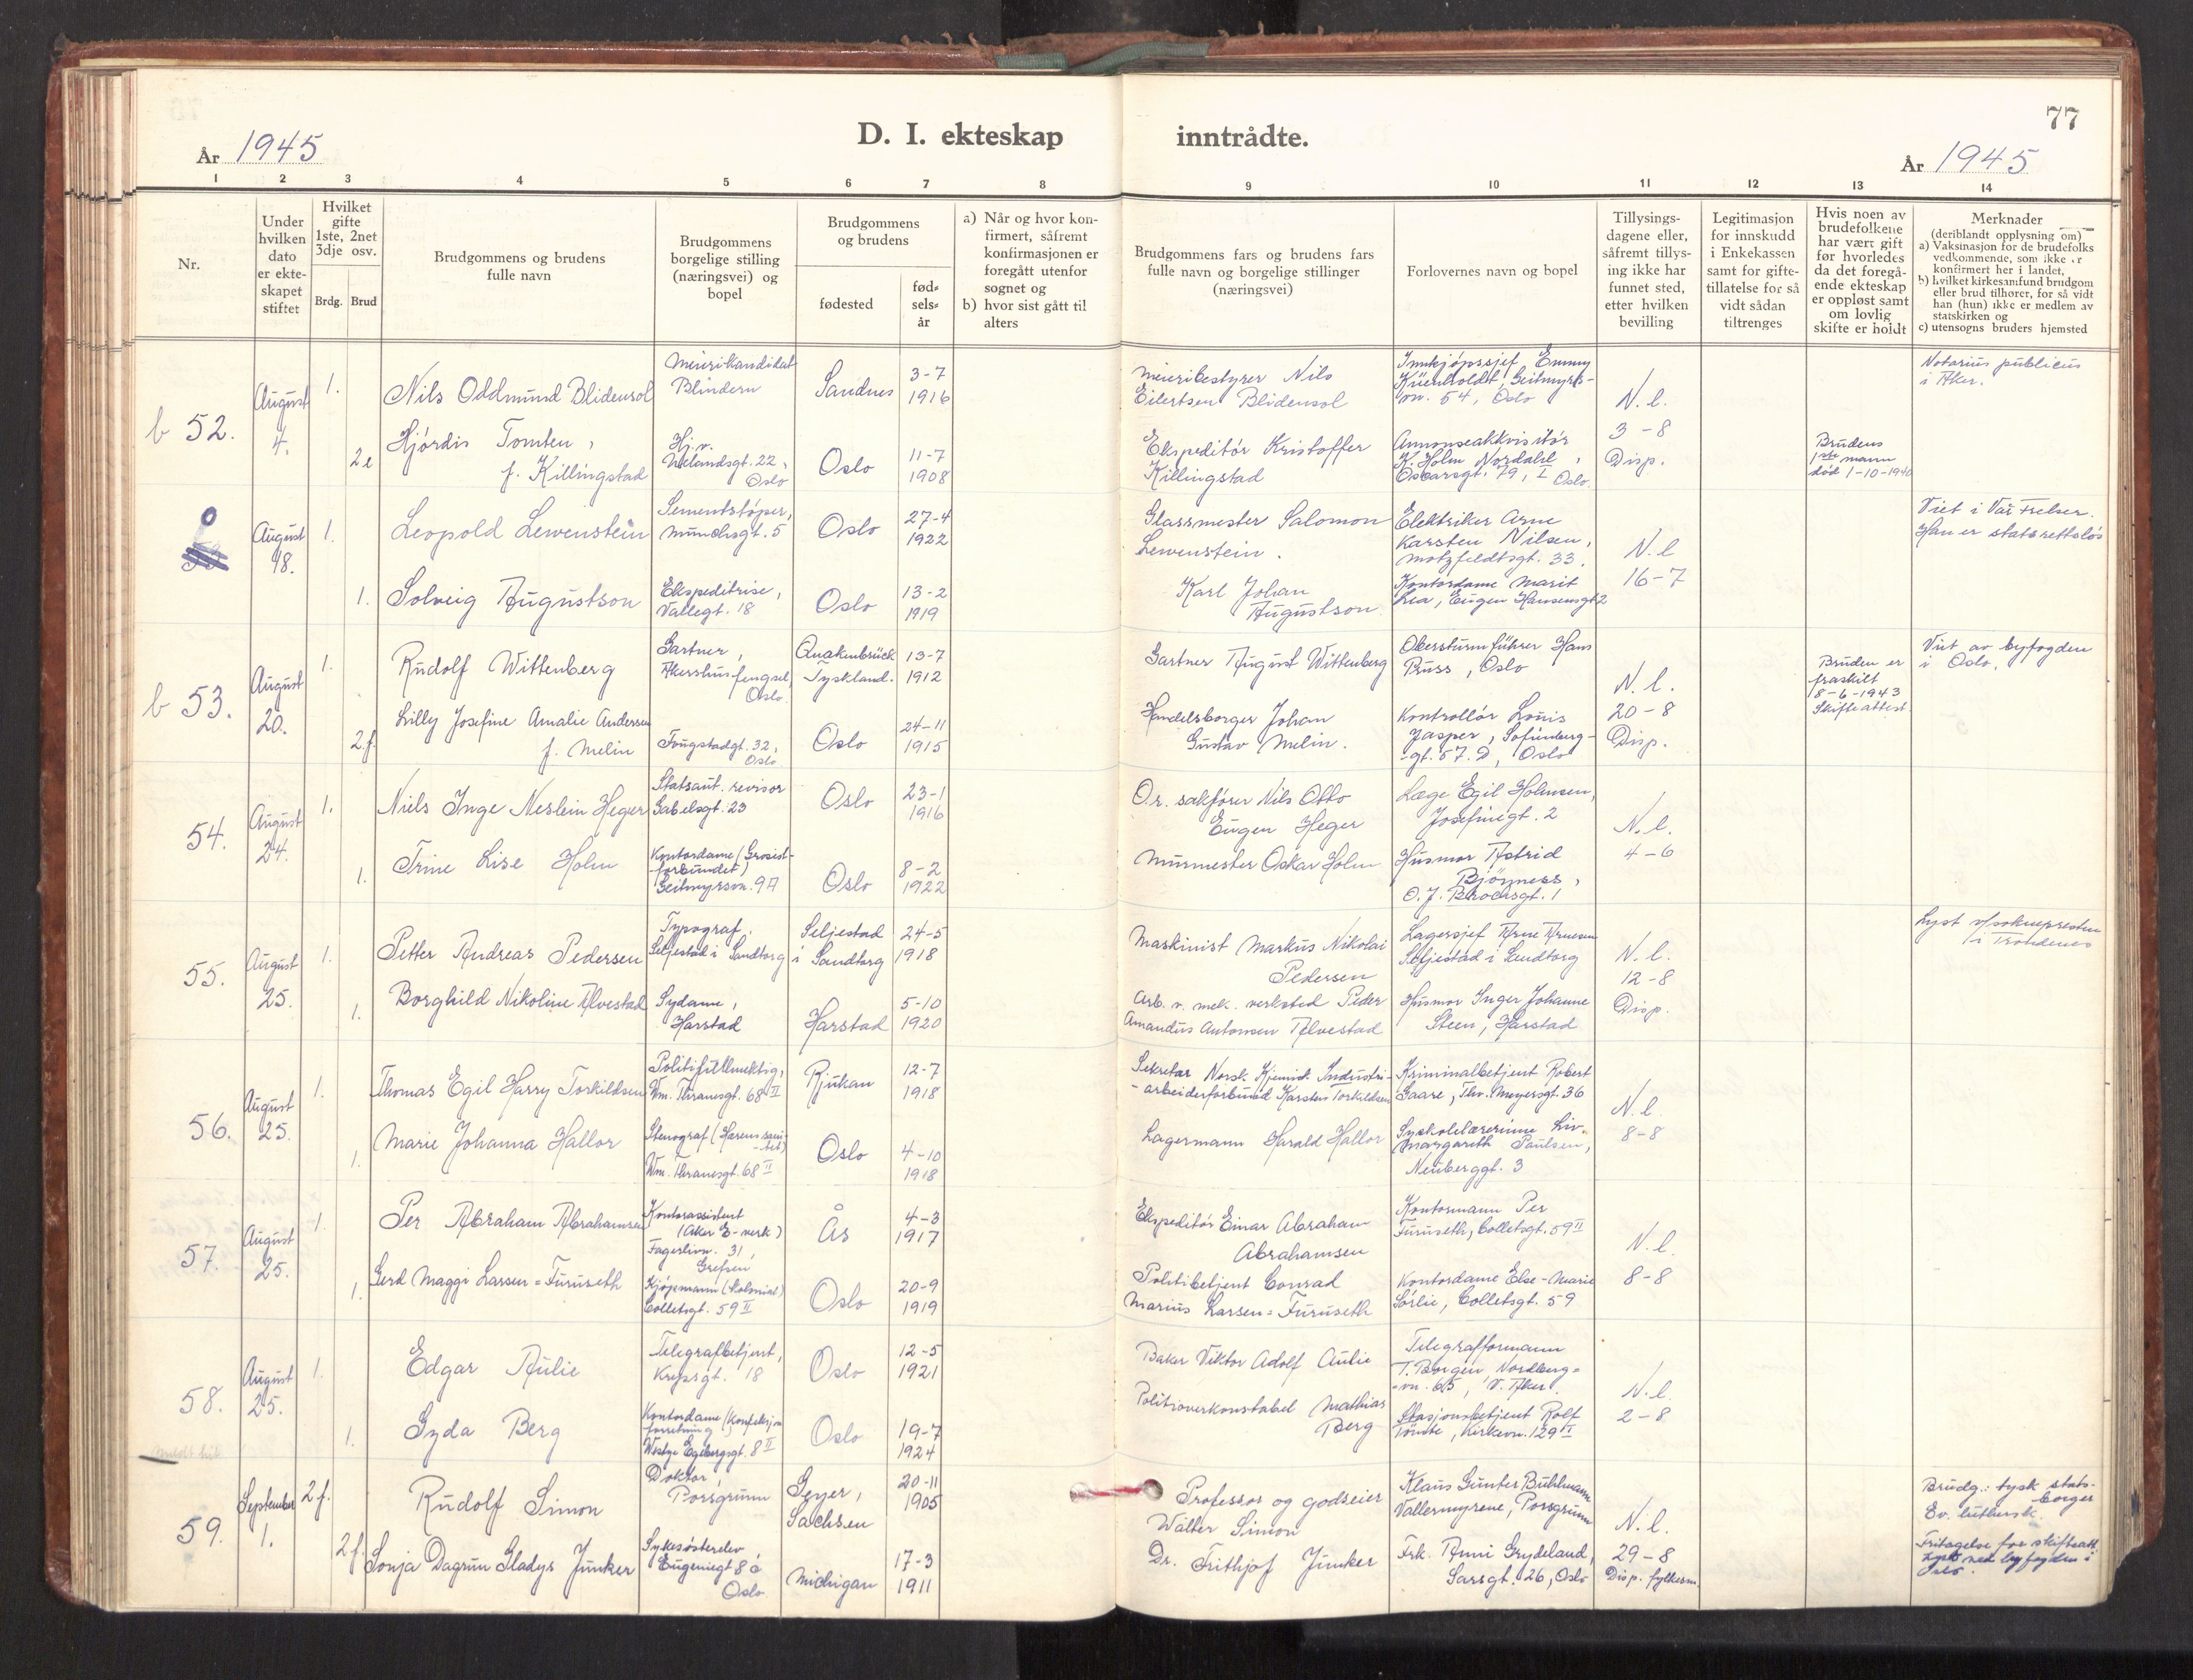 77
D. I. ekteskap inntrådte.
År 1945
År 1945
1 2 3 4 5 6 7 8 9 10 11 12 13 14
Nr.
Under hvilken dato er ekte-skapet stiftet
Hvilket gifte 1ste, 2net 3dje osv.
Brdg. Brud
Brudgommens og brudens fulle navn
Brudgommens borgelige stilling (næringsvei) og bopel
Brudgommens og brudens
fødested
fød-sels-år
a) Når og hvor kon-firmert, såfremt konfirmasjonen er foregått utenfor sognet og
b) hvor sist gått til alters
Brudgommens fars og brudens fars fulle navn og borgelige stillinger (næringsvei)
Forlovernes navn og bopel
Tillysings-dagene eller, såfremt tillys-ing ikke har funnet sted, etter hvilken bevilling
Legitimasjon for innskudd i Enkekassen samt for gifte-tillatelse for så vidt sådan tiltrenges
Hvis noen av brudefolkene har vært gift før hvorledes da det foregå-ende ekteskap er oppløst samt om lovlig skifte er holdt
Merknader
(deriblandt opplysning om)
a) Vaksinasjon for de brudefolks vedkommende, som ikke er konfirmert her i landet,
b) hvilket kirkesamfund brudgom eller brud tilhører, for så vidt han (hun) ikke er medlem av statskirken og
c) utensogns bruders hjemsted
b 52.
August
4.
1.
Nils Oddmund Blidensol
Meierikandidat
Blindern
Sandnes
3-7
1916
Meieribestyrer Nils
Eilertsen Blidensol
Innkjøpssjef Emmy
Küenholdt, Geitmyrs-
vn. 54, Oslo
N. l.
3-8
Disp.
Notarius publicus
i Aker.
2 e
Hjördis Tomten,
f. Killingstad
Hj.v.
Uelandsgt. 22,
Oslo
Oslo
11-7
1908
Ekspeditör Kristoffer
Killingstad
Annonseakkvisitör
K. Holm Nordahl,
Oscarsgt. 79, I Oslo.
Brudens
1ste mann
död 1-10-1940
August
18.
1.
Leopold Lewenstein
Sementstöper,
Munchsgt. 5
Oslo
27-4
1922
Glassmester Salomon
Lewenstein.
Elektriker Arne
Karsten Nilsen,
Motzfeldtsgt. 33.
N. l
16-7
Viet i Vår Frelser.
Han er statsrettslös
1.
Solveig Augustson
Ekspeditrise,
Vallegt. 18
Oslo
13-2
1919
Karl Johan
Augustson
Kontordame Marit
Lea, Eugen Hansensgt 2
b 53.
August
20.
1.
Rudolf Wittenberg
Gartner,
Akershus fengsel,
Oslo.
Quakenbrück
Tyskland.
13-7
1912
Gartner August Wittenberg
Obersturmführer Hans
Russ, Oslo
N. l.
20-8
Disp.
Bruden er
fraskilt
8-6-1943
Skifteattest.
Viet av byfogden
i Oslo.
2 f.
Lilly Josefine Amalie Andersen
f. Melin
Fougstadgt. 32,
Oslo.
Oslo
24-11
1915
Handelsborger Johan
Gustav Melin.
Kontrollör Louis
Jasper, Sofienberg-
gt. 57. D, Oslo
54.
August
24.
1.
Niels Inge Neslein Heger
Statsaut. revisor
Gabelsgt. 23
Oslo
23-1
1916
O.r. sakförer Nils Otto
Eugen Heger
Læge Egil Holmsen,
Josefinegt. 2
N. l.
4-6
1.
Trine Lise Holm
Kontordame (Grosist-
forbundet)
Geitmyrsvn. 9A
Oslo
8-2
1922
Murmester Oskar Holm
Husmor Astrid
Björness,
O. J. Brochsgt. 1
55.
August
25.
1.
Petter Andreas Pedersen
Typograf,
Seljestad i Sandtorg
Seljestad
i Sandtorg
24-5
1918
Maskinist Markus Nikolai
Pedersen
Lagersjef Arne Arnesen
Seljestad i Sandtorg
N. l.
12-8
Disp.
Lyst v/soknepresten
i Trondenes
1.
Borghild Nikoline Alvestad
Sydame,
Harstad
Harstad
5-10
1920
Arb. v. mek. verksted Peder
Amandus Antonsen Alvestad
Husmor Inger Johanne
Steen, Harstad
56.
August
25.
1.
Thomas Egil Harry Torkildsen
Politifullmektig,
Wm. Thranesgt. 68 II
Rjukan
12-7
1918
Sekretær Norsk Kjemisk Industri-
arbeiderforbund Karsten Torkildsen
Kriminalbetjent Robert
Gaare, Thv. Meyersgt. 36
N. l.
8-8
1.
Marie Johanna Hallor
Stenograf (Hærens sani-
tet)
Wm. Thranesgt. 68 II
Oslo
4-10
1918
Lagermann Harald Hallor
Syskolelærerinne Liv
Margareth Paulsen,
Neuberggt. 3
57.
August
25.
1.
Per Abraham Abrahamsen
Kontorassistent
(Aker E-verk)
Fagerlivn. 31,
Grefsen
Ås
4-3
1917
Ekspeditör Einar Abraham
Abrahamsen
Kontormann Per
Furuseth, Colletsgt. 59 II
N. l.
8-8
1.
Gerd Maggi Larsen=Furuseth
Kjöpmann (Kolonial)
Colletsgt. 59 II
Oslo
20-9
1919
Politibetjent Conrad
Marius Larsen=Furuseth
Kontordame Else-Marie
Sörlie, Colletsgt. 59
58.
August
25.
1.
Edgar Aulie
Telegrafbetjent,
Keysgt. 18
Oslo
12-5
1921
Baker Viktor Adolf Aulie
Telegrafformann
T. Borgen Nordberg=
=vn. 65, V. Aker.
N. l.
2-8
1.
Gyda Berg
Kontordame (Konfeksjon
forretning)
Westye Egebergsgt. 8 II
Oslo
19-7
1924
Politioverkonstabel Mathias
Berg
Stasjonsbetjent Rolf
Töndte, Kirkevn. 129 VI
59.
September
1.
2 f.
Rudolf Simon
Doktor,
Porsgrunn
Geyer,
Sachsen
20-11
1905
Professor og godseier
Walter Simon
Klaus Günter Bühlmann
Vallermyrene, Porsgrunn
N. l.
29-8
Disp. fylkesm.
Brudg.: tysk stats-
borger
Ev. luthersk.
Fritagelse for skifteatt.
Lyst ved byfogden i
Oslo.
2 f.
Sonja Dagrun Gladys Junker
Sykesösterelev
Eugeniegt 8
Oslo
Michigan
17-3
1911
Dr. Frithjof Junker
Frk. Anni Grydeland,
Sarsgt. 26, Oslo